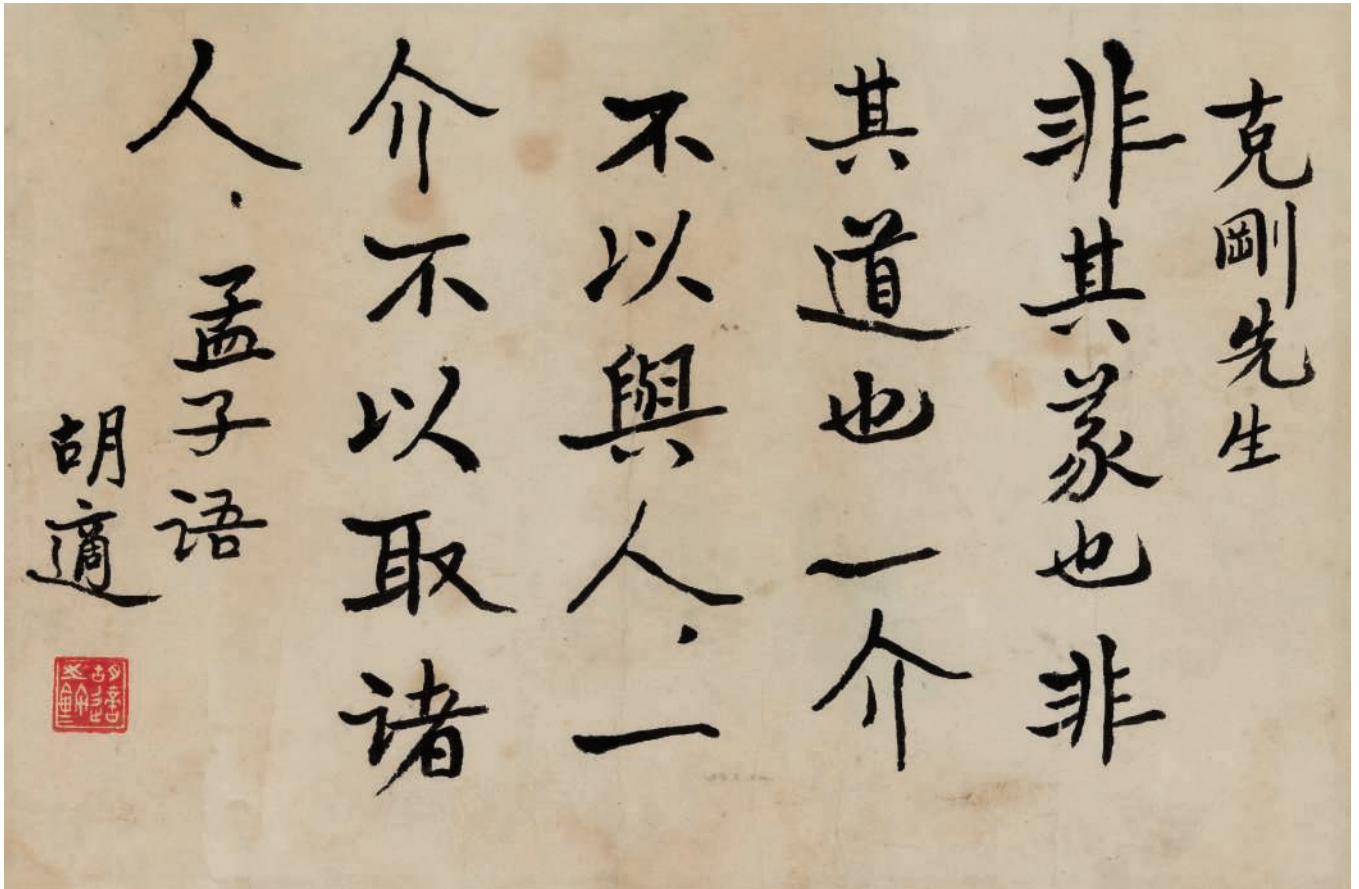 克剛先生
非其義也非
其道也一介
不以與人．一
介不以取諸
人．孟子語
胡適
胡適之鉨